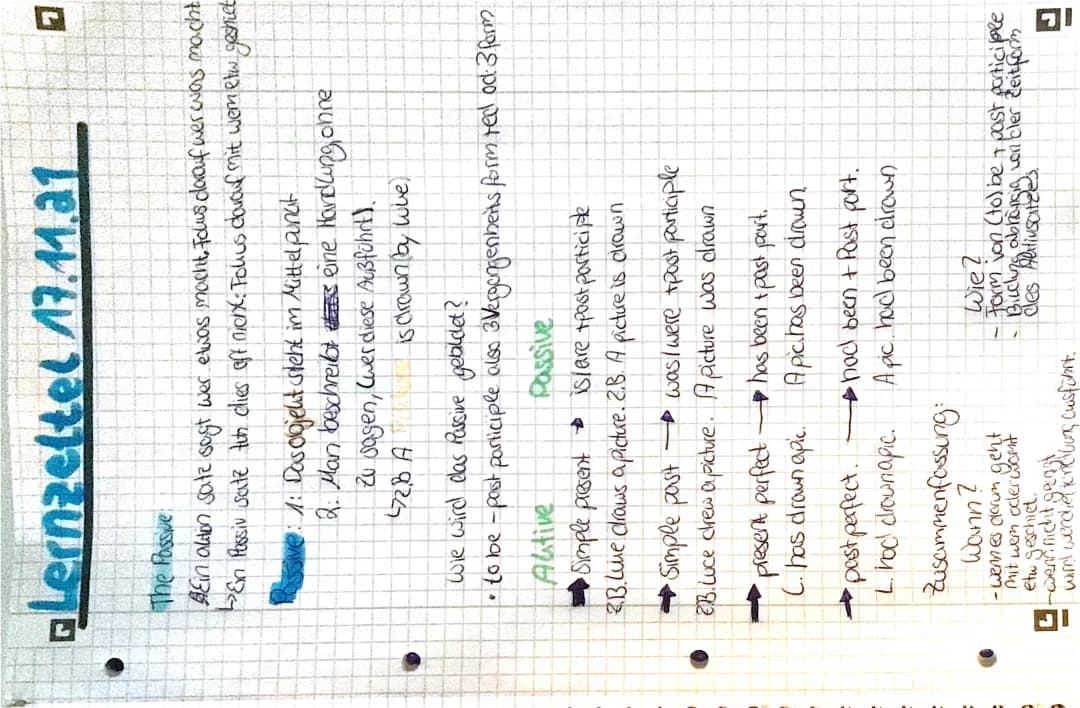 Lernzettel 17.11.21
The Passive
Ein aktiv satz sagt wer etwas macht, Fokus darauf wer was macht
↳ Ein Passiv satz tuh dies oft nicht: Fokus darauf mit wem etw. geschiet
Passive: 1: Das objekt steht im Mittelpunkt
2: Man beschreibt eine Handlung, ohne
zu sagen, (wer diese Ausführt).
↳ z.B A is drawn (by Luce)
Wie wird das Passive gebildet?
• to be - past participle also 3 Vergangenheitsform + ed od: 3 form
Aktive Passive
➡ Simple present → is/are + past participle
z.B. Luce draws a picture. z.B. A picture is drawn
→ Simple past → was/were + past participle
z.B. Luce drew a picture. A picture was drawn
→ present perfect → has been + past part.
L. has drawn a pic. A pic. has been drawn
→ past perfect. → had been + Past part.
L. had drawn a pic. A pic. had been drawn
Zusammenfassung:
Wann?
- wenn es darum geht
mit wem oder womit
etw geschiet.
- wenn nicht gesagt
wird wer die Handlung ausführt.
Wie?
- Form von (to) be + past participle
- Bildung abhängig von der Zeitform
des Aktivsatzes